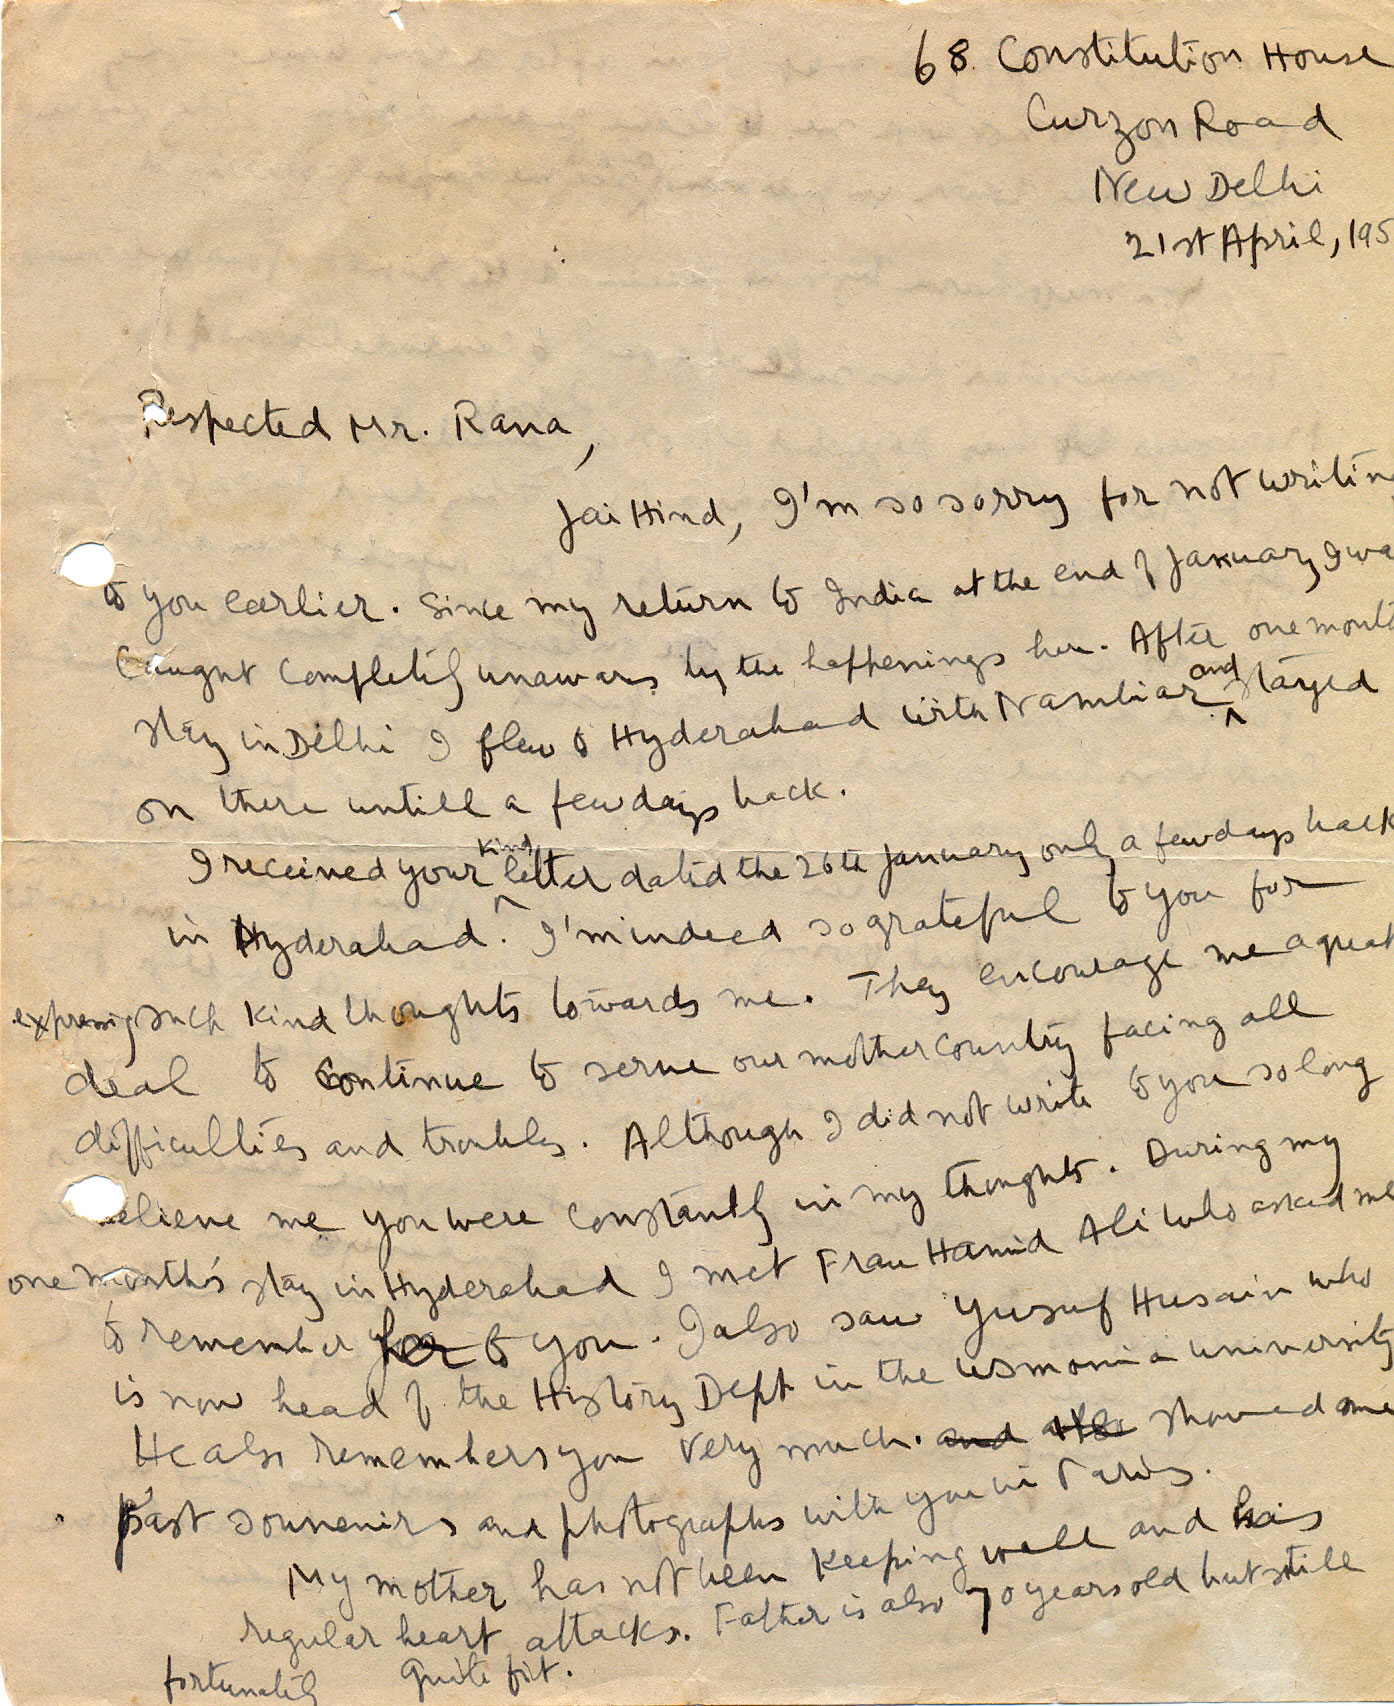 68 Constitution House
Curzon Road
New Delhi
21st April, 195
Respected Mr. Rana,
Jai Hind, I'm so sorry for not writing
to you earlier. Since my return to India at the end of January, I was
caught completely unawares by the happenings here. After one month
stay in Delhi I flew to Hyderabad with Nambiar and stayed
on there untill a few days back.
I received your kind letter dated the 26th January only a few days back
in Hyderabad. I'm indeed so grateful to you for
expressing such kind thoughts towards me. They encourage me a great
deal to continue to serve our mother country facing all
difficulties and troubles. Although I did not write to you so long
believe me you were constantly in my thoughts. During my
one month's stay in Hyderabad I met Frau Hamid Ali who asked me
to remember her to you. I also saw Yusuf Husain who
is now head of the History Dept in the Usmania University
He also remembers you very much. and also showed me
past souvenirs and photographs with you in Paris.
My mother has not been keeping well and has
regular heart attacks. Father is also 70 years old but still
fortunately quite fit.